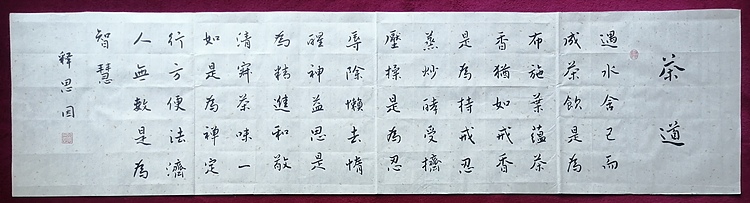 茶道
遇水舍己而
成茶飲是為
布施葉蘊茶
香猶如戒香
是為持戒忍
蒸炒酵受擠
壓揉是為忍
辱除懶去惰
醒神益思是
為精進和敬
清寂茶味一
如是為禪定
行方便法濟
人無數是為
智慧
释思因